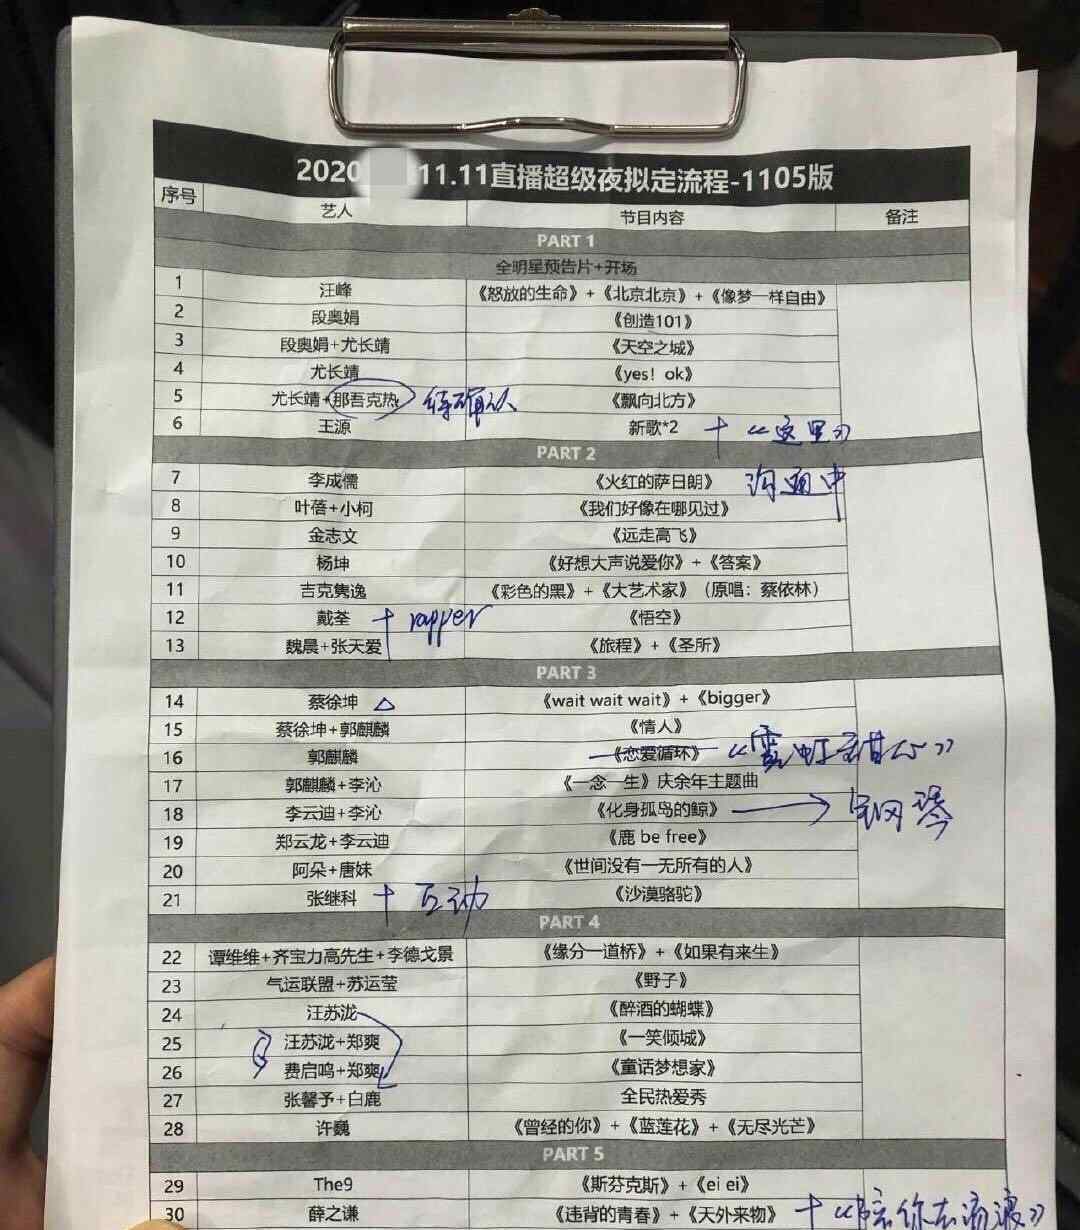 2020 11.11直播超级夜拟定流程-1105版
序号 艺人 节目内容 备注
PART 1
全明星预告片+开场
1 汪峰 《怒放的生命》+《北京北京》+《像梦一样自由》
2 段奥娟 《创造101》
3 段奥娟+尤长靖 《天空之城》
4 尤长靖 《yes！ok》
5 尤长靖+那吾克热 待确认 《飘向北方》
6 王源 新歌*2 +《这里》
PART 2
7 李成儒 《火红的萨日朗》 沟通中
8 叶蓓+小柯 《我们好像在哪见过》
9 金志文 《远走高飞》
10 杨坤 《好想大声说爱你》+《答案》
11 吉克隽逸 《彩色的黑》+《大艺术家》（原唱：蔡依林）
12 戴荃 + rapper 《悟空》
13 魏晨+张天爱 《旅程》+《圣所》
PART 3
14 蔡徐坤 △ 《wait wait wait》+《bigger》
15 蔡徐坤+郭麒麟 《情人》
16 郭麒麟 《恋爱循环》 《霓虹甜心》
17 郭麒麟+李沁 《一念一生》庆余年主题曲
18 李云迪+李沁 《化身孤岛的鲸》 → 钢琴
19 郑云龙+李云迪 《鹿 be free》
20 阿朵+唐妹 《世间没有一无所有的人》
21 张继科 + 互动 《沙漠骆驼》
PART 4
22 谭维维+齐宝力高先生+李德戈景 《缘分一道桥》+《如果有来生》
23 气运联盟+苏运莹 《野子》
24 汪苏泷 《醉酒的蝴蝶》
25 汪苏泷+郑爽 《一笑倾城》
26 费启鸣+郑爽 《童话梦想家》
27 张馨予+白鹿 全民热爱秀
28 许巍 《曾经的你》+《蓝莲花》+《无尽光芒》
PART 5
29 The9 《斯芬克斯》+《ei ei》
30 薛之谦 《违背的青春》+《天外来物》 +《陪你去流浪》